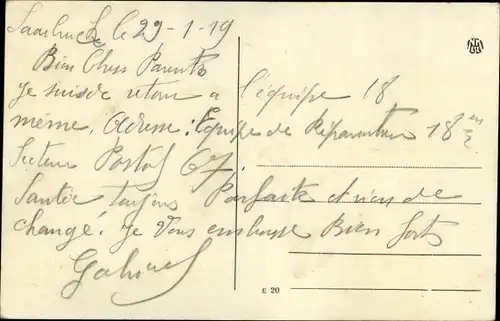 Saarbruck le 29-1-19
Bien Chers Parents
Je suis de retour a l'équipe 18
même, Adresse : Equipe de Réparation 18 em
Secteur Postal 67.
Santée toujours Parfaite et rien de
changé. Je Vous embrasse Bien fort
Gabriel
E 20